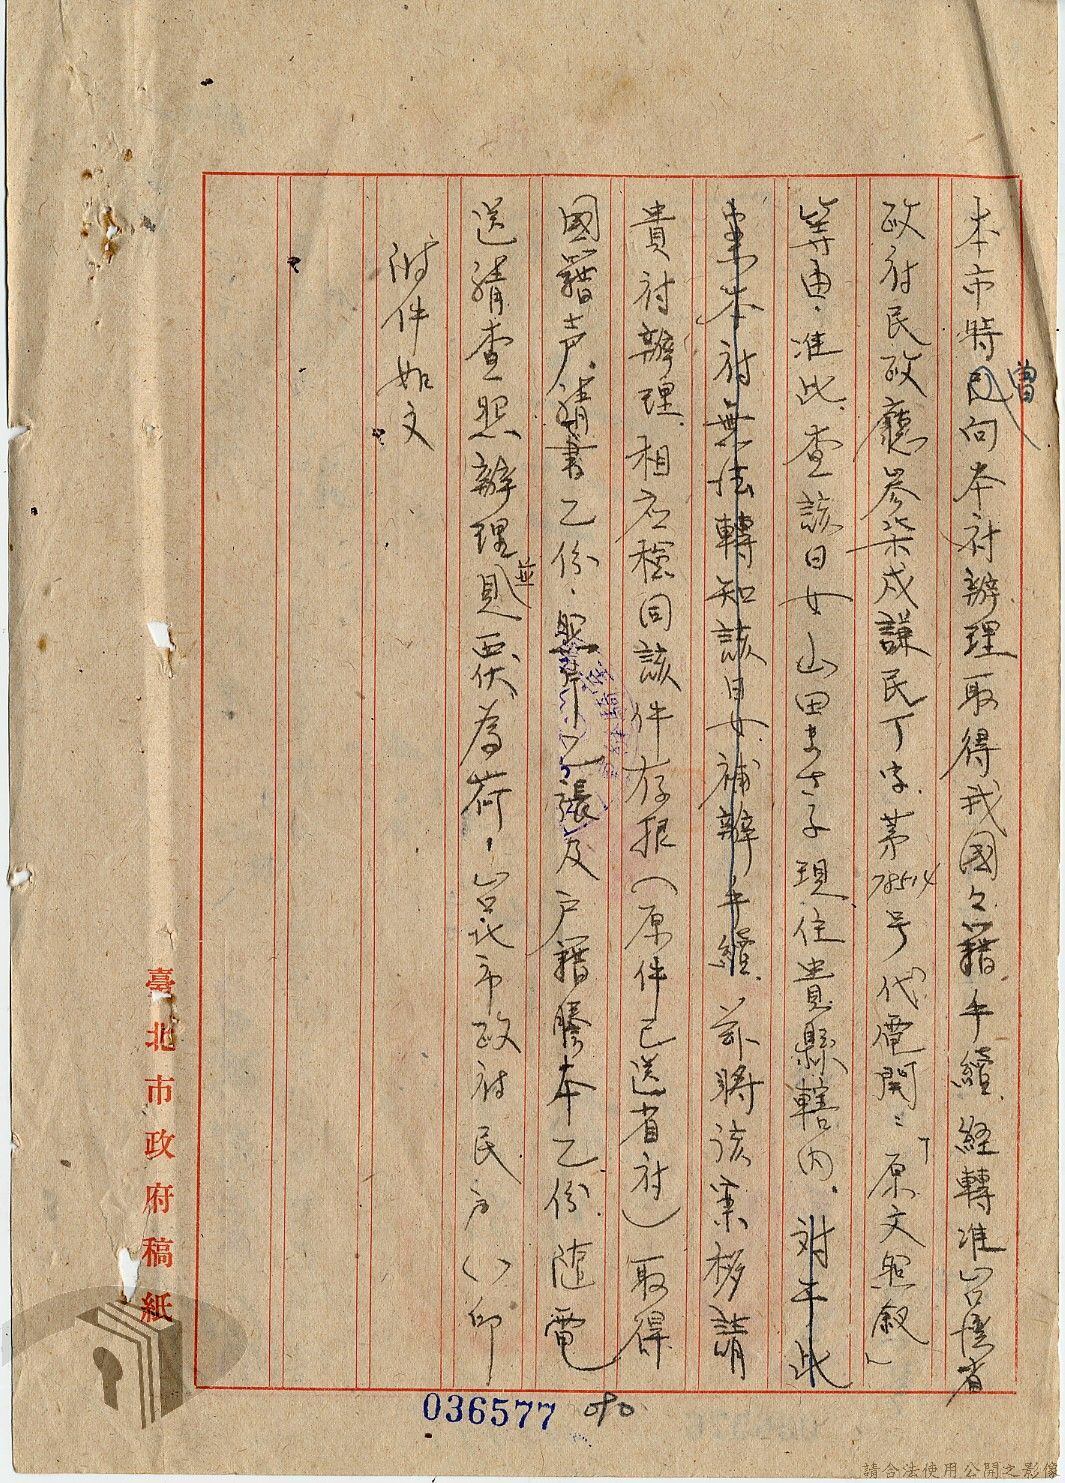 本市時曾向本府辦理取得我國々籍手續、経轉准台湾省
政府民政廳參柒戍謙民丁字第78514号代電開：「原文照敘」
等由、准此、查該日女山田まさ子現住貴縣轄内、对于此
案本府無法轉知該日女補辦手續、茲將該案移請
貴府辦理、相应檢同該件存根（原件已送省府）取得
國籍声請書乙份、照片乙張及戸籍謄本乙份、隨電
送請查照辦理並見覆為荷、台北市政府民戸（）印
附件如文
臺北市政府稿紙
036577
090
請合法使用公開之影像